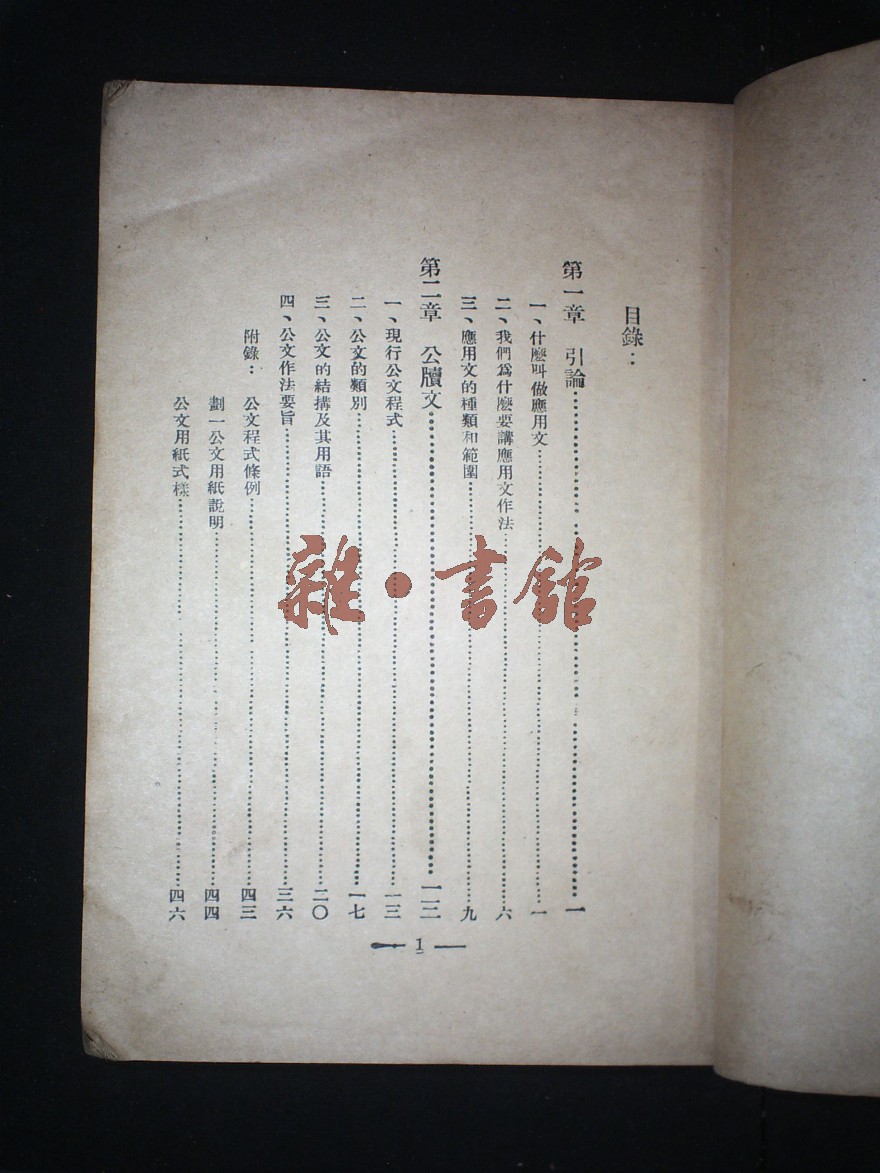 目錄：
第一章 引論……一
一、什麼叫做應用文……一
二、我們爲什麼要講應用文作法……六
三、應用文的種類和範圍……九
第二章 公牘文……一三
一、現行公文程式……一三
二、公文的類別……一七
三、公文的結搆及其用語……二〇
四、公文作法要旨……三六
附錄：公文程式條例……四三
劃一公文用紙說明……四四
公文用紙式樣……四六
1
雜・書館